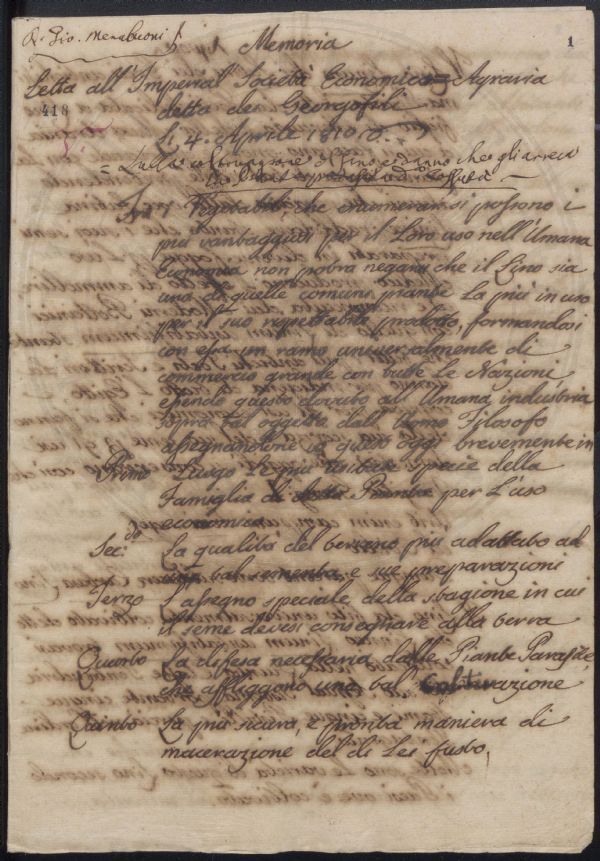 Dr. Gio. Menabuoni
1
Memoria
Letta all'Imperial Società Economico=Agraria
418
detta de Georgofili
Li 4. Aprile 1810
Sulla coltivazione di Lino e danno che gli arreca
la
Fra i Vegetabili, che enumerarsi possono i
più vantaggiosi per il Loro uso nell'Umana
Economia non potrà negarsi che il Lino sia
una di quelle comuni piante La più in uso
per il suo rispettabile prodotto, formandosi
con essa un ramo universalmente di
commercio grande con tutte Le Nazioni
essendo questo dovuto all'Umana industria
sopra tal oggetto dall'Uomo Filosofo
assegnandone in quest'oggi brevemente in
Primo Luogo le più usitate specie della
Famiglia di Piante per L'uso
economico
Sec:do La qualità del terreno più adattato ad
una tal sementa, e sue preparazioni
Terzo L'assegno speciale della stagione in cui
il seme devesi consegnare alla terra
Quarto La difesa necessaria dalle Piante Parasite
che affliggono una tal Coltivazione
Quinto La più sicura, e pronta maniera di
macerazione del di Lei fusto,